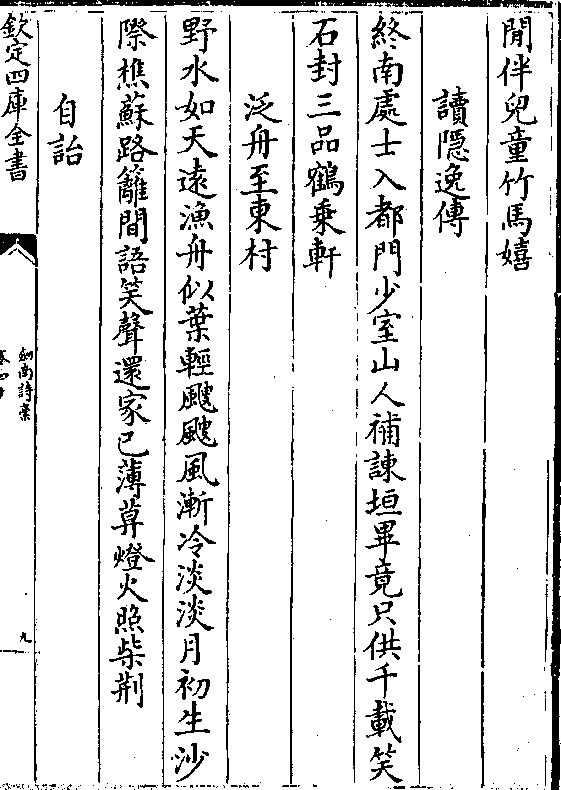 閒伴兒童竹馬嬉
讀隱逸傳
終南處士入都門少室山人補諫垣畢竟只供千載笑
石封三品鶴乗軒
泛舟至東村
野水如天遠漁舟似葉輕颼颼風漸冷淡淡月初生沙
際樵蘇路籬間語笑聲還家已薄莫燈火照柴荆
自詒
欽定四庫全書
劍南詩槀
九